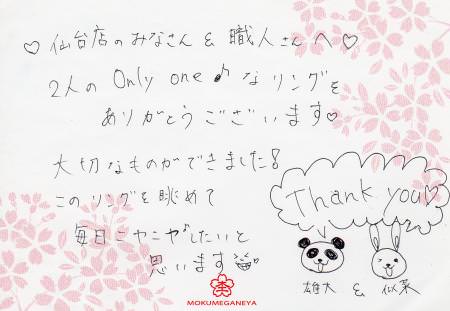 ♡仙台店のみなさん & 職人さんへ♡
2人の Only one♪なリングを
ありがとうございます♡
大切なものができました!
このリングを眺めて
毎日ニヤニヤしたいと
思います
Thank you♡
雄大 & 似菜
MOKUMEGANEYA